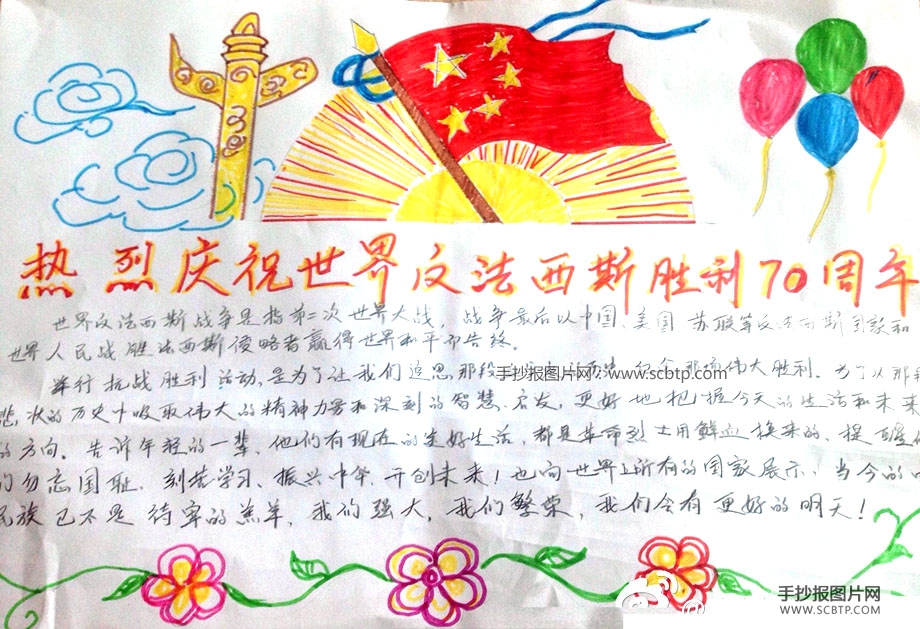 热烈庆祝世界反法西斯胜利70周年
世界反法西斯战争是指第二次世界大战，战争最后以中国、美国 苏联等反法西斯国家和
世界人民战胜法西斯侵略者赢得世界和平而告终。
举行抗战胜利活动，是为了让我们追思那段 伟大胜利。为了从那
手抄报图片网：www.scbtp.com
悲壮的历史中吸取伟大的精神力量和深刻的智慧、启发，更好地把握今天的生活和未来
的方向。告诉年轻的一辈，他们有现在的美好生活，都是革命烈士用鲜血换来的、提醒
们勿忘国耻、刻苦学习、振兴中华，开创未来！也向世界上所有的国家展示、当今的
民族已不是待宰的羔羊，我们强大，我们繁荣，我们会有更好的明天！
手抄报图片网
WWW.SCBTP.COM